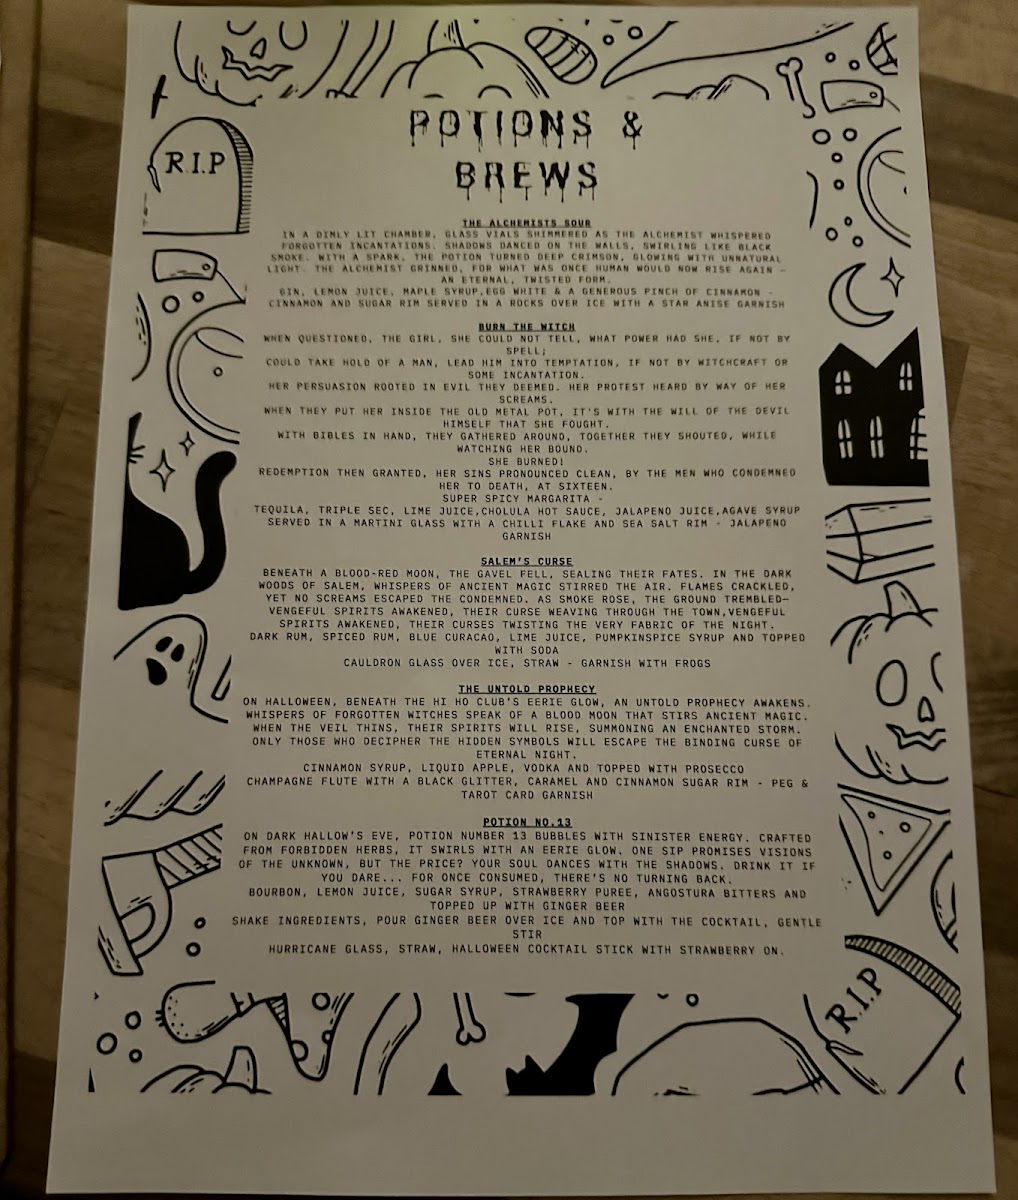 POTIONS &
BREWS
R.I.P
THE ALCHEMISTS SOUR
IN A DIMLY LIT CHAMBER, GLASS VIALS SHIMMERED AS THE ALCHEMIST WHISPERED
FORGOTTEN INCANTATIONS. SHADOWS DANCED ON THE WALLS, SWIRLING LIKE BLACK
SMOKE. WITH A SPARK, THE POTION TURNED DEEP CRIMSON, GLOWING WITH UNNATURAL
LIGHT. THE ALCHEMIST GRINNED, FOR WHAT WAS ONCE HUMAN WOULD NOW RISE AGAIN —
AN ETERNAL, TWISTED FORM.
GIN, LEMON JUICE, MAPLE SYRUP,EGG WHITE & A GENEROUS PINCH OF CINNAMON -
CINNAMON AND SUGAR RIM SERVED IN A ROCKS OVER ICE WITH A STAR ANISE GARNISH
BURN THE WITCH
WHEN QUESTIONED, THE GIRL, SHE COULD NOT TELL, WHAT POWER HAD SHE, IF NOT BY
SPELL;
COULD TAKE HOLD OF A MAN, LEAD HIM INTO TEMPTATION, IF NOT BY WITCHCRAFT OR
SOME INCANTATION.
HER PERSUASION ROOTED IN EVIL THEY DEEMED. HER PROTEST HEARD BY WAY OF HER
SCREAMS.
WHEN THEY PUT HER INSIDE THE OLD METAL POT, IT'S WITH THE WILL OF THE DEVIL
HIMSELF THAT SHE FOUGHT.
WITH BIBLES IN HAND, THEY GATHERED AROUND, TOGETHER THEY SHOUTED, WHILE
WATCHING HER BOUND.
SHE BURNED!
REDEMPTION THEN GRANTED, HER SINS PRONOUNCED CLEAN, BY THE MEN WHO CONDEMNED
HER TO DEATH, AT SIXTEEN.
SUPER SPICY MARGARITA -
TEQUILA, TRIPLE SEC, LIME JUICE,CHOLULA HOT SAUCE, JALAPENO JUICE,AGAVE SYRUP
SERVED IN A MARTINI GLASS WITH A CHILLI FLAKE AND SEA SALT RIM - JALAPENO
GARNISH
SALEM'S CURSE
BENEATH A BLOOD-RED MOON, THE GAVEL FELL, SEALING THEIR FATES. IN THE DARK
WOODS OF SALEM, WHISPERS OF ANCIENT MAGIC STIRRED THE AIR. FLAMES CRACKLED,
YET NO SCREAMS ESCAPED THE CONDEMNED. AS SMOKE ROSE, THE GROUND TREMBLED—
VENGEFUL SPIRITS AWAKENED, THEIR CURSE WEAVING THROUGH THE TOWN,VENGEFUL
SPIRITS AWAKENED, THEIR CURSES TWISTING THE VERY FABRIC OF THE NIGHT.
DARK RUM, SPICED RUM, BLUE CURACAO, LIME JUICE, PUMPKINSPICE SYRUP AND TOPPED
WITH SODA
CAULDRON GLASS OVER ICE, STRAW - GARNISH WITH FROGS
THE UNTOLD PROPHECY
ON HALLOWEEN, BENEATH THE HI HO CLUB'S EERIE GLOW, AN UNTOLD PROPHECY AWAKENS.
WHISPERS OF FORGOTTEN WITCHES SPEAK OF A BLOOD MOON THAT STIRS ANCIENT MAGIC.
WHEN THE VEIL THINS, THEIR SPIRITS WILL RISE, SUMMONING AN ENCHANTED STORM.
ONLY THOSE WHO DECIPHER THE HIDDEN SYMBOLS WILL ESCAPE THE BINDING CURSE OF
ETERNAL NIGHT.
CINNAMON SYRUP, LIQUID APPLE, VODKA AND TOPPED WITH PROSECCO
CHAMPAGNE FLUTE WITH A BLACK GLITTER, CARAMEL AND CINNAMON SUGAR RIM - PEG &
TAROT CARD GARNISH
POTION NO.13
ON DARK HALLOW'S EVE, POTION NUMBER 13 BUBBLES WITH SINISTER ENERGY. CRAFTED
FROM FORBIDDEN HERBS, IT SWIRLS WITH AN EERIE GLOW. ONE SIP PROMISES VISIONS
OF THE UNKNOWN, BUT THE PRICE? YOUR SOUL DANCES WITH THE SHADOWS. DRINK IT IF
YOU DARE... FOR ONCE CONSUMED, THERE'S NO TURNING BACK.
BOURBON, LEMON JUICE, SUGAR SYRUP, STRAWBERRY PUREE, ANGOSTURA BITTERS AND
TOPPED UP WITH GINGER BEER
SHAKE INGREDIENTS, POUR GINGER BEER OVER ICE AND TOP WITH THE COCKTAIL, GENTLE
STIR
HURRICANE GLASS, STRAW, HALLOWEEN COCKTAIL STICK WITH STRAWBERRY ON.
R.I.P